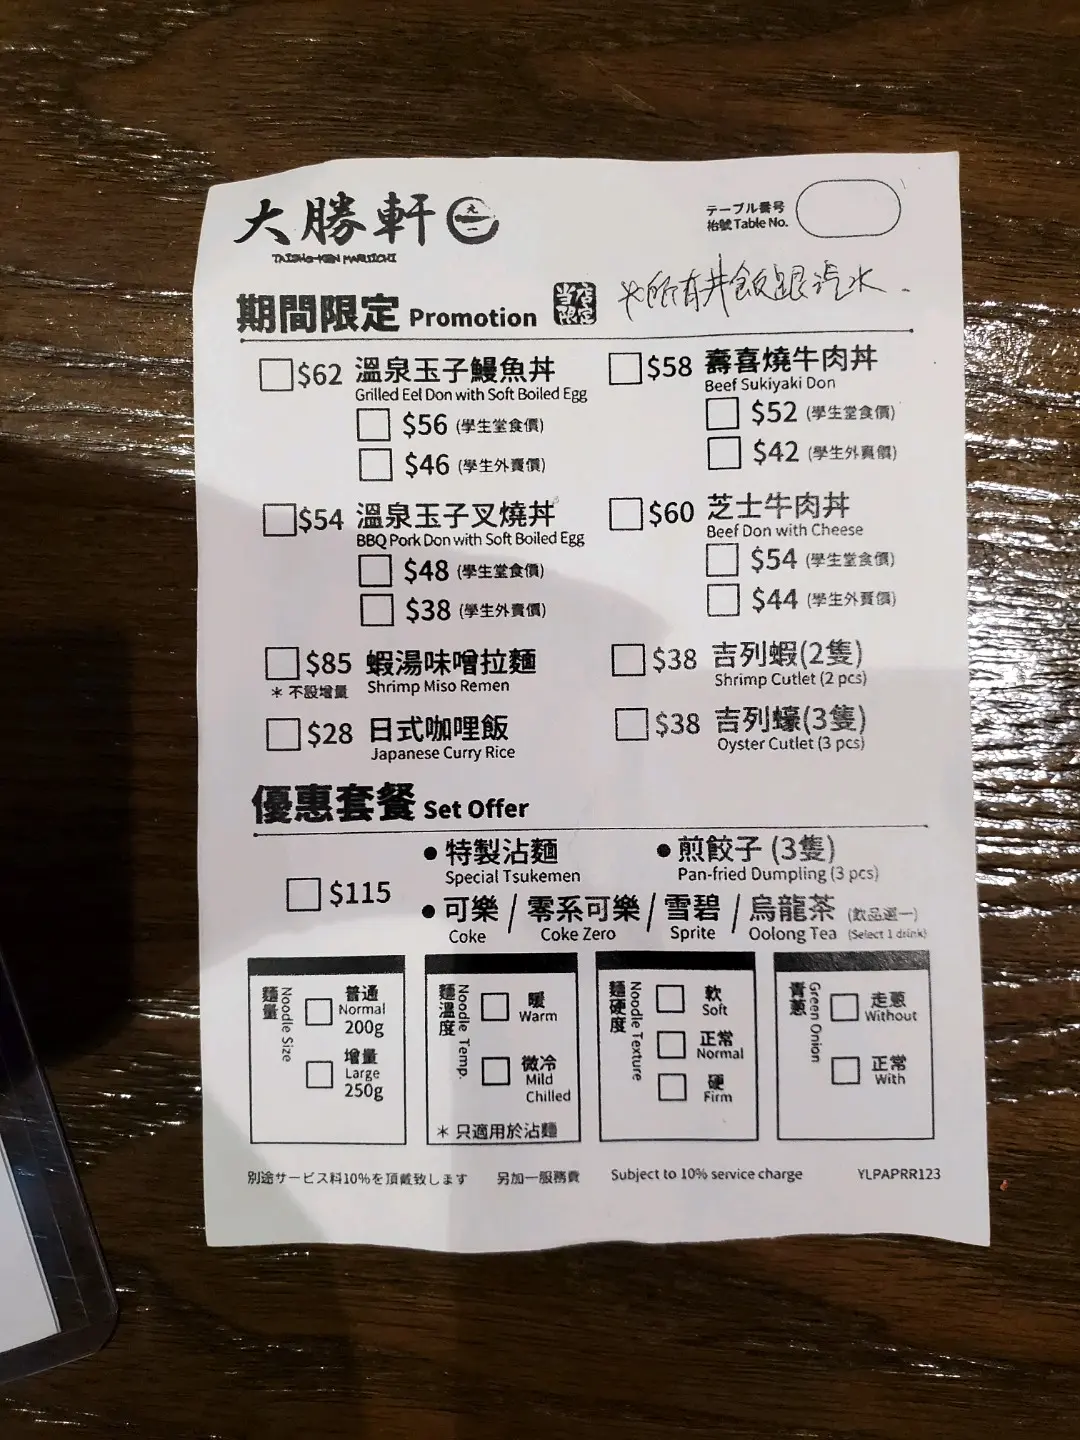 大勝軒 元一
TAISHO-KEN MARUICHI
テーブル番号
枱號 Table No.
期間限定 Promotion 当店限定
*所有丼飯跟汽水.
$62 溫泉玉子鰻魚丼
Grilled Eel Don with Soft Boiled Egg
$56 (學生堂食價)
$46 (學生外賣價)
$58 壽喜燒牛肉丼
Beef Sukiyaki Don
$52 (學生堂食價)
$42 (學生外賣價)
$54 溫泉玉子叉燒丼
BBQ Pork Don with Soft Boiled Egg
$48 (學生堂食價)
$38 (學生外賣價)
$60 芝士牛肉丼
Beef Don with Cheese
$54 (學生堂食價)
$44 (學生外賣價)
$85 蝦湯味噌拉麵
* 不設增量 Shrimp Miso Remen
$38 吉列蝦(2隻)
Shrimp Cutlet (2 pcs)
$28 日式咖哩飯
Japanese Curry Rice
$38 吉列蠔(3隻)
Oyster Cutlet (3 pcs)
優惠套餐 Set Offer
$115
• 特製沾麵
Special Tsukemen
• 煎餃子 (3隻)
Pan-fried Dumpling (3 pcs)
• 可樂 / 零系可樂 / 雪碧 / 烏龍茶 (飲品選一)
Coke Coke Zero Sprite Oolong Tea (Select 1 drink)
麵量 Noodle Size
普通
Normal
200g
增量
Large
250g
麵溫度 Noodle Temp.
暖
Warm
微冷
Mild
Chilled
* 只適用於沾麵
麵硬度 Noodle Texture
軟
Soft
正常
Normal
硬
Firm
青蔥 Green Onion
走蔥
Without
正常
With
別途サービス料10%を頂戴致します 另加一服務費 Subject to 10% service charge YLPAPRR123